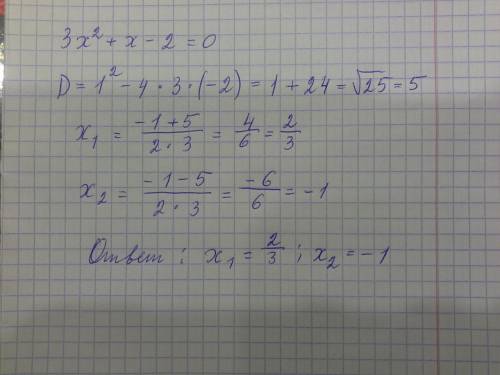 3x² + x - 2 = 0
D = 1² - 4 · 3 · (-2) = 1 + 24 = √25 = 5
x₁ = (-1+5)/(2·3) = 4/6 = 2/3
x₂ = (-1-5)/(2·3) = -6/6 = -1
Ответ: x₁ = 2/3; x₂ = -1